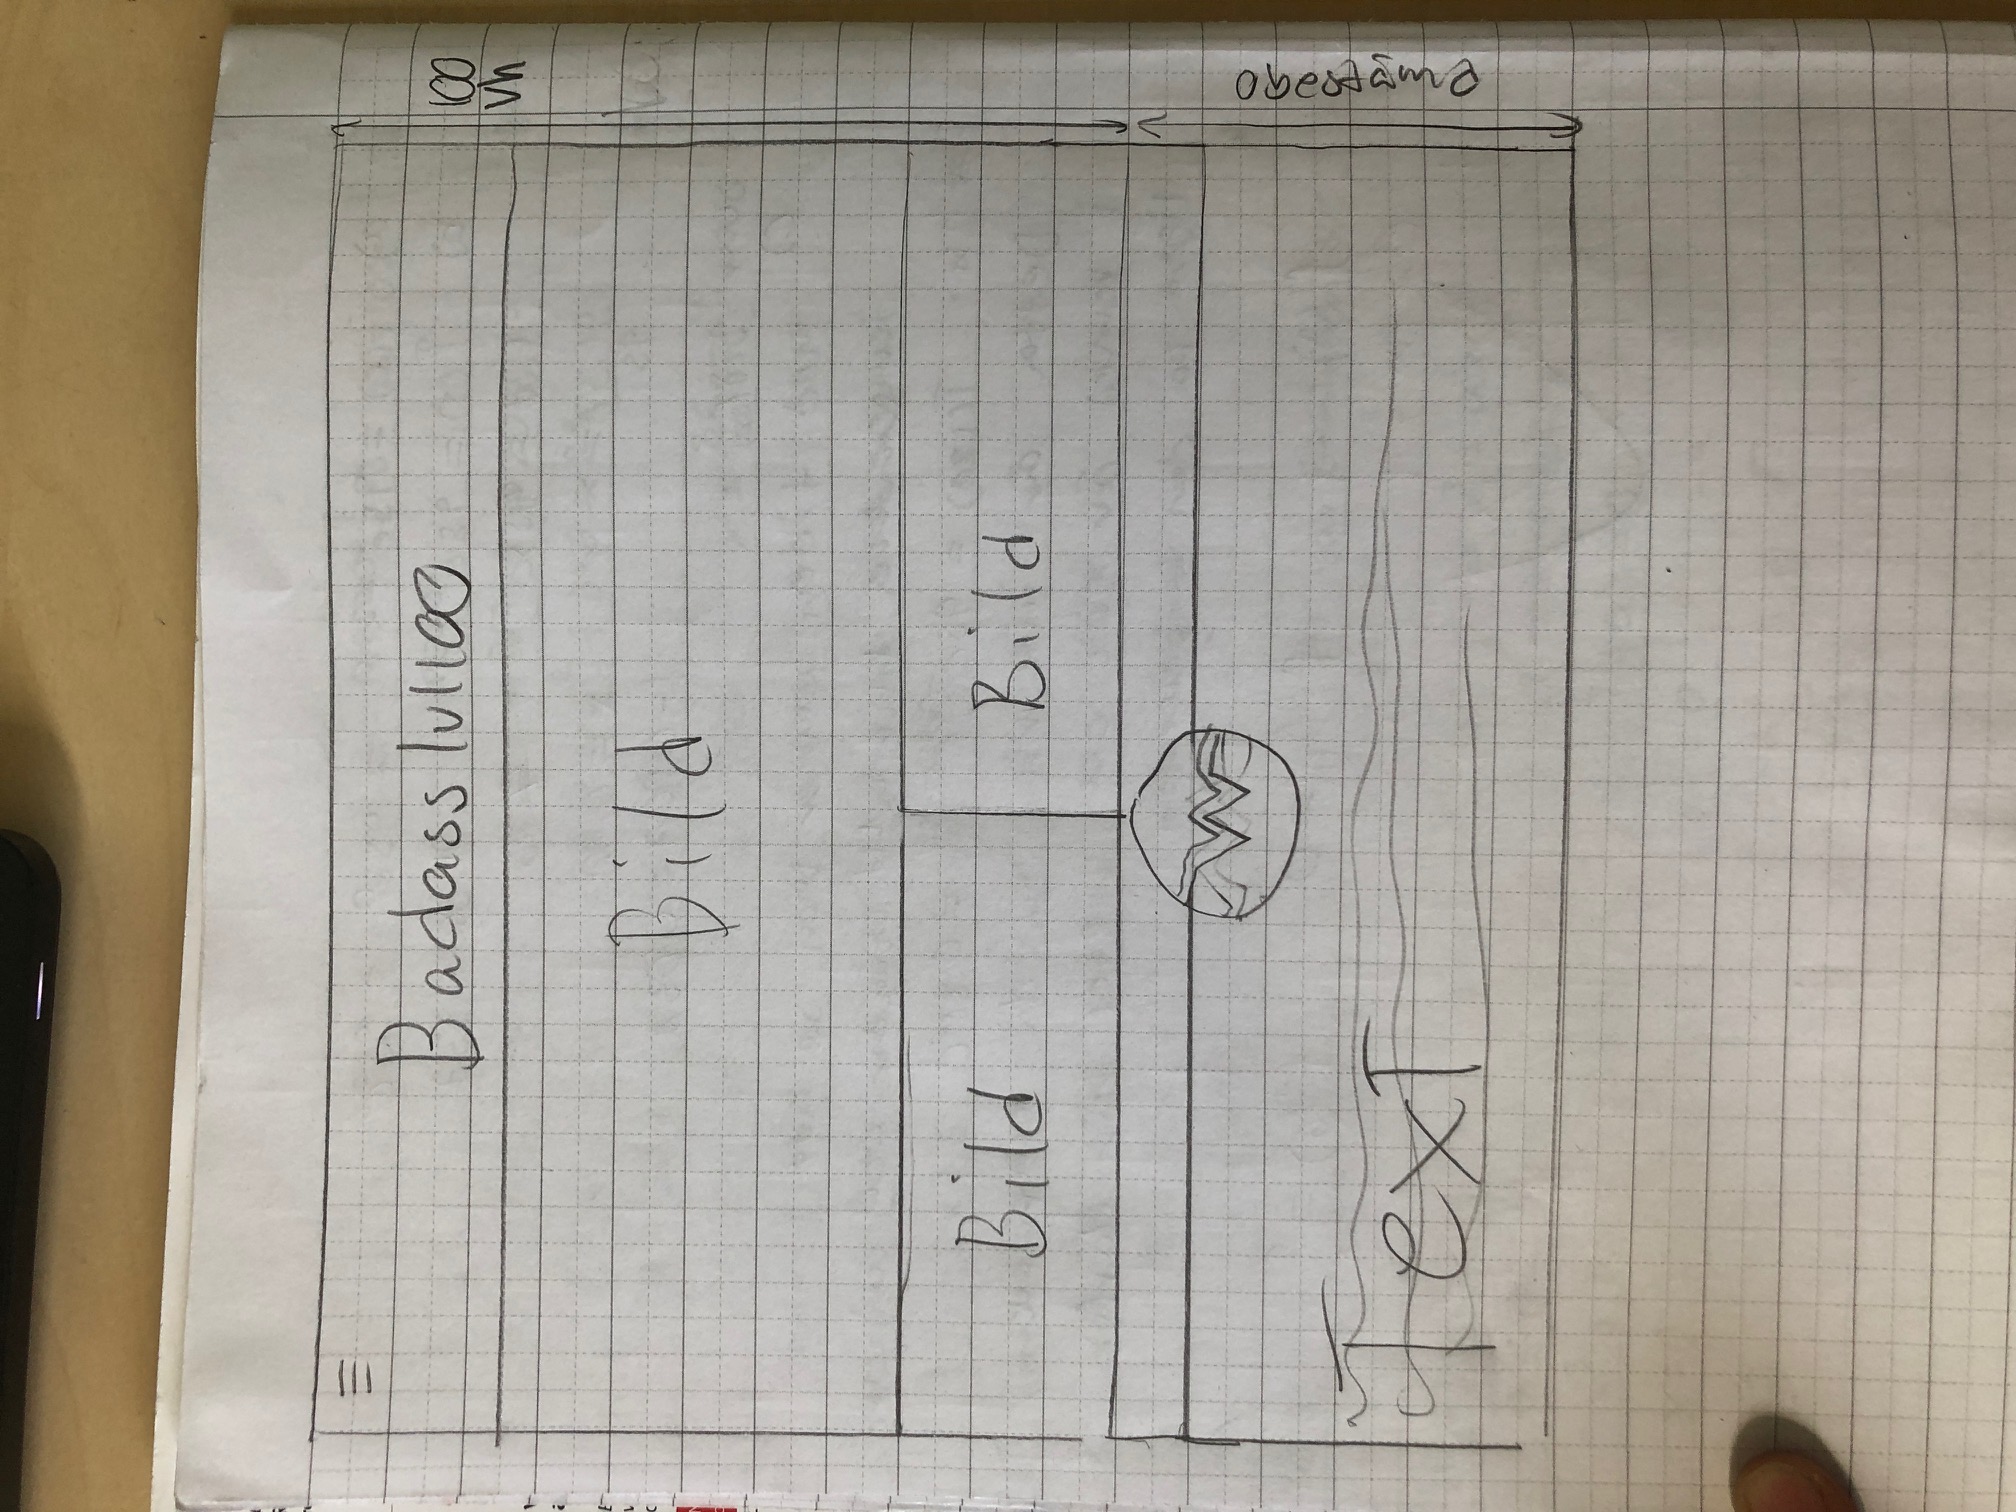 Badass lvl100
100
vh
Bild
Bild Bild
W
Text
obestämd